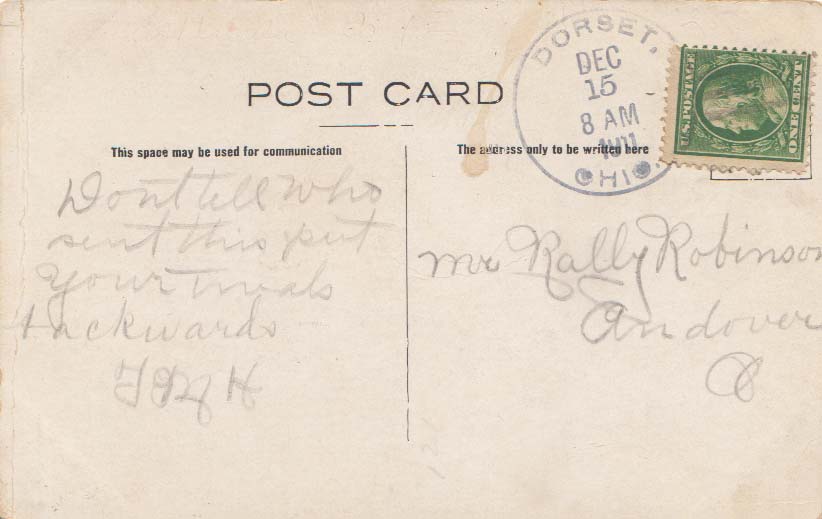 POST CARD
This space may be used for communication
The address only to be written here
DORSET,
DEC
15
8 AM
1911
OHIO.
U.S. POSTAGE
ONE CENT
Dont tell who
sent this put
your
backwards
Mr Rally Robinson
Andover
O